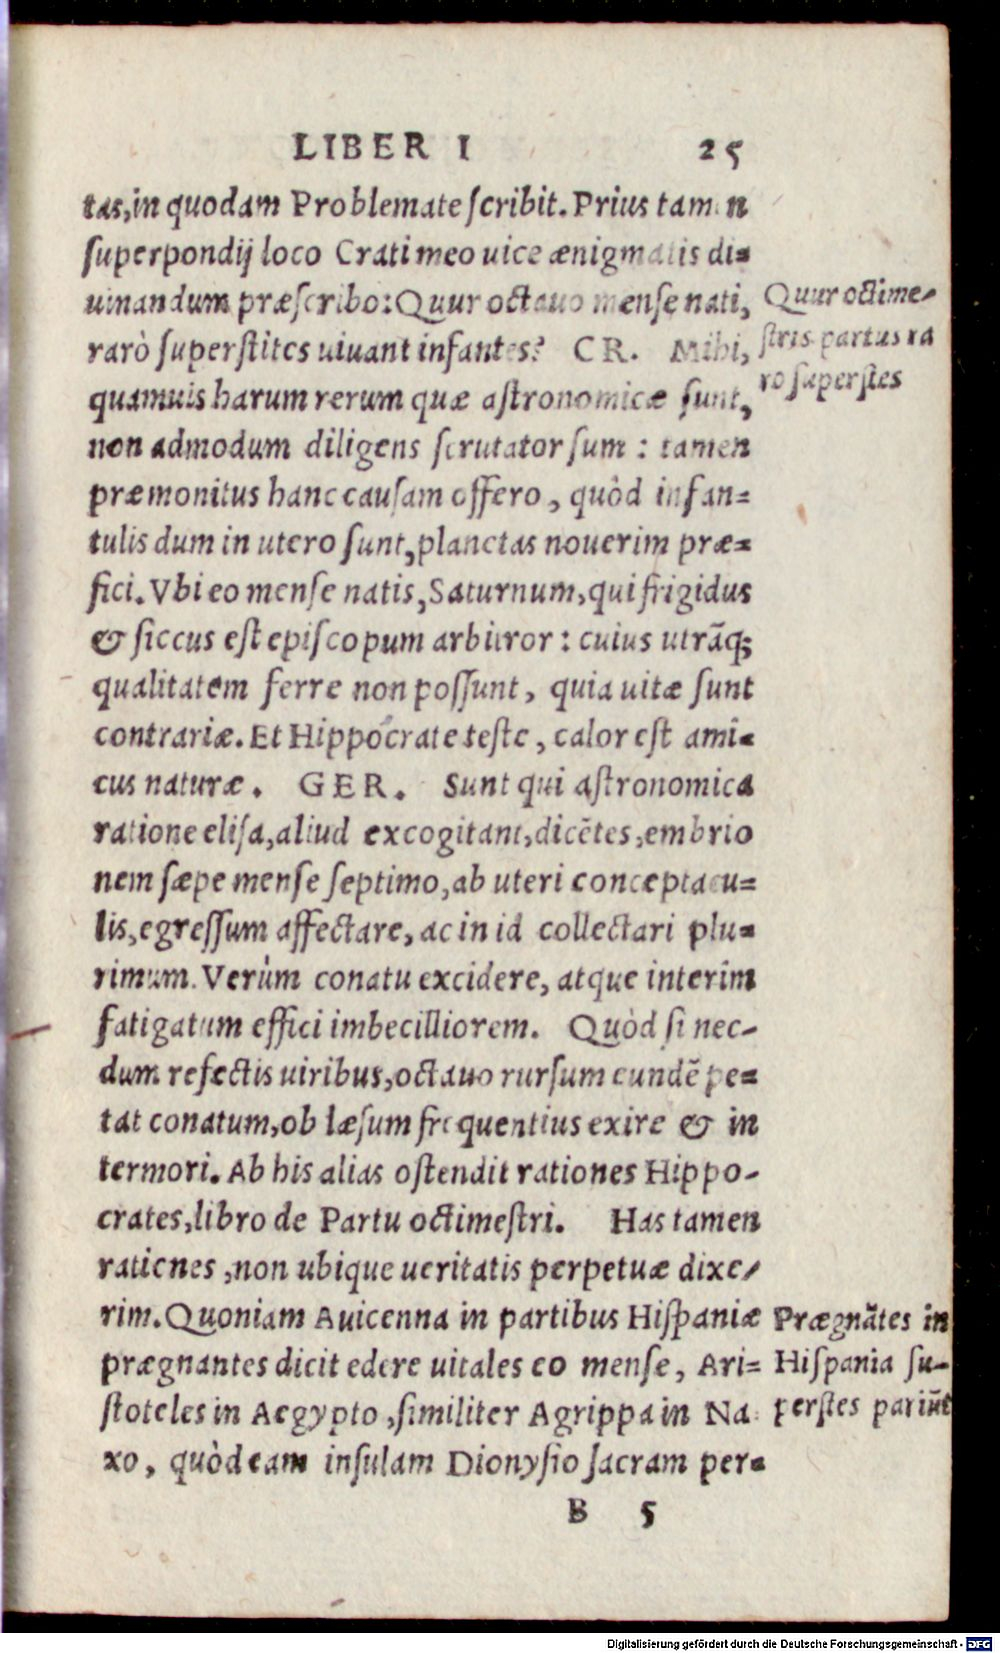 LIBER I 25
tas, in quodam Problemate ſcribit. Prius tamen
ſuperpondij loco Crati meo uice ænigmatis di-
uinandum præſcribo: Quur octauo menſe nati,
rarò ſuperſtites uiuant infantes? CR. Mihi,
quamuis harum rerum quæ aſtronomicæ ſunt,
non admodum diligens ſcrutator ſum: tamen
præmonitus hanc cauſam offero, quòd infan-
tulis dum in utero ſunt, planetas nouerim præ-
fici. Vbi eo menſe natis, Saturnum, qui frigidus
& ſiccus eſt epiſcopum arbitror: cuius utrāq;
qualitatem ferre non poſſunt, quia uitæ ſunt
contrariæ. Et Hippocrate teſte, calor eſt ami-
cus naturæ. GER. Sunt qui aſtronomica
ratione eliſa, aliud excogitant, dicētes, embrio
nem ſæpe menſe ſeptimo, ab uteri conceptacu-
lis, egreſſum affectare, ac in id collectari plu-
rimum. Verùm conatu excidere, atque interîm
fatigatum effici imbecilliorem. Quòd ſi nec-
dum refectis uiribus, octauo rurſum eundē pe-
tat conatum, ob læſum frequentius exire & in
termori. Ab his alias oſtendit rationes Hippo-
crates, libro de Partu octimeſtri. Has tamen
rationes, non ubique ueritatis perpetuæ dixe-
rim. Quoniam Auicenna in partibus Hiſpaniæ
prægnantes dicit edere uitales eo menſe, Ari-
ſtoteles in Aegypto, ſimiliter Agrippa in Na
xo, quòd eam inſulam Dionyſio ſacram per-
B 5
Quur octime-
ſtris partus ra
ro ſuperſtes
Prægnātes in
Hiſpania ſu-
perſtes pariūt
Digitalisierung gefördert durch die Deutsche Forschungsgemeinschaft - DFG